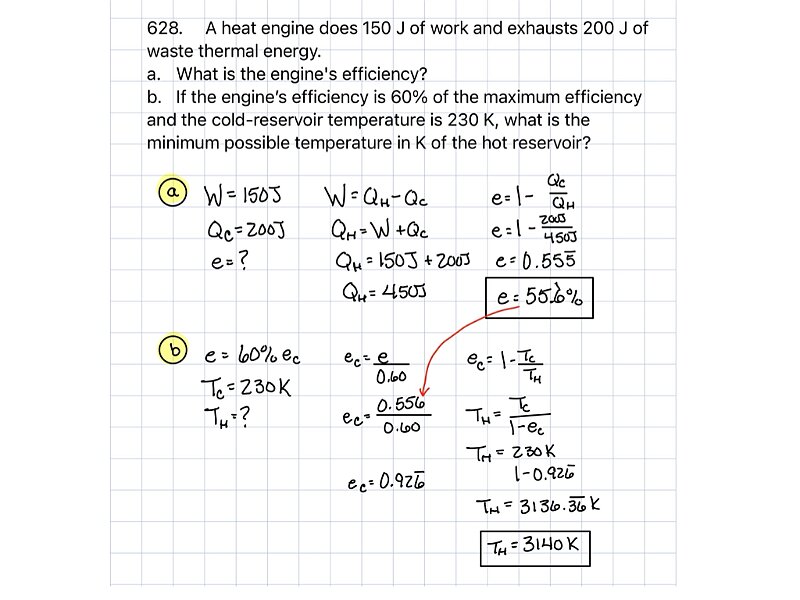 628. A heat engine does 150 J of work and exhausts 200 J of
waste thermal energy.
a. What is the engine's efficiency?
b. If the engine's efficiency is 60% of the maximum efficiency
and the cold-reservoir temperature is 230 K, what is the
minimum possible temperature in K of the hot reservoir?
a
W = 150J
Qc = 200J
e = ?
W = QH - Qc
QH = W + Qc
QH = 150J + 200J
QH = 450J
e = 1 - Qc/QH
e = 1 - 200J/450J
e = 0.555̅
e = 55.6%
b
e = 60% ec
Tc = 230K
TH = ?
ec = e/0.60
ec = 0.556/0.60
ec = 0.926̅
ec = 1 - Tc/TH
TH = Tc/1-ec
TH = 230K/1-0.926̅
TH = 3136.3̅6̅ K
TH = 3140 K